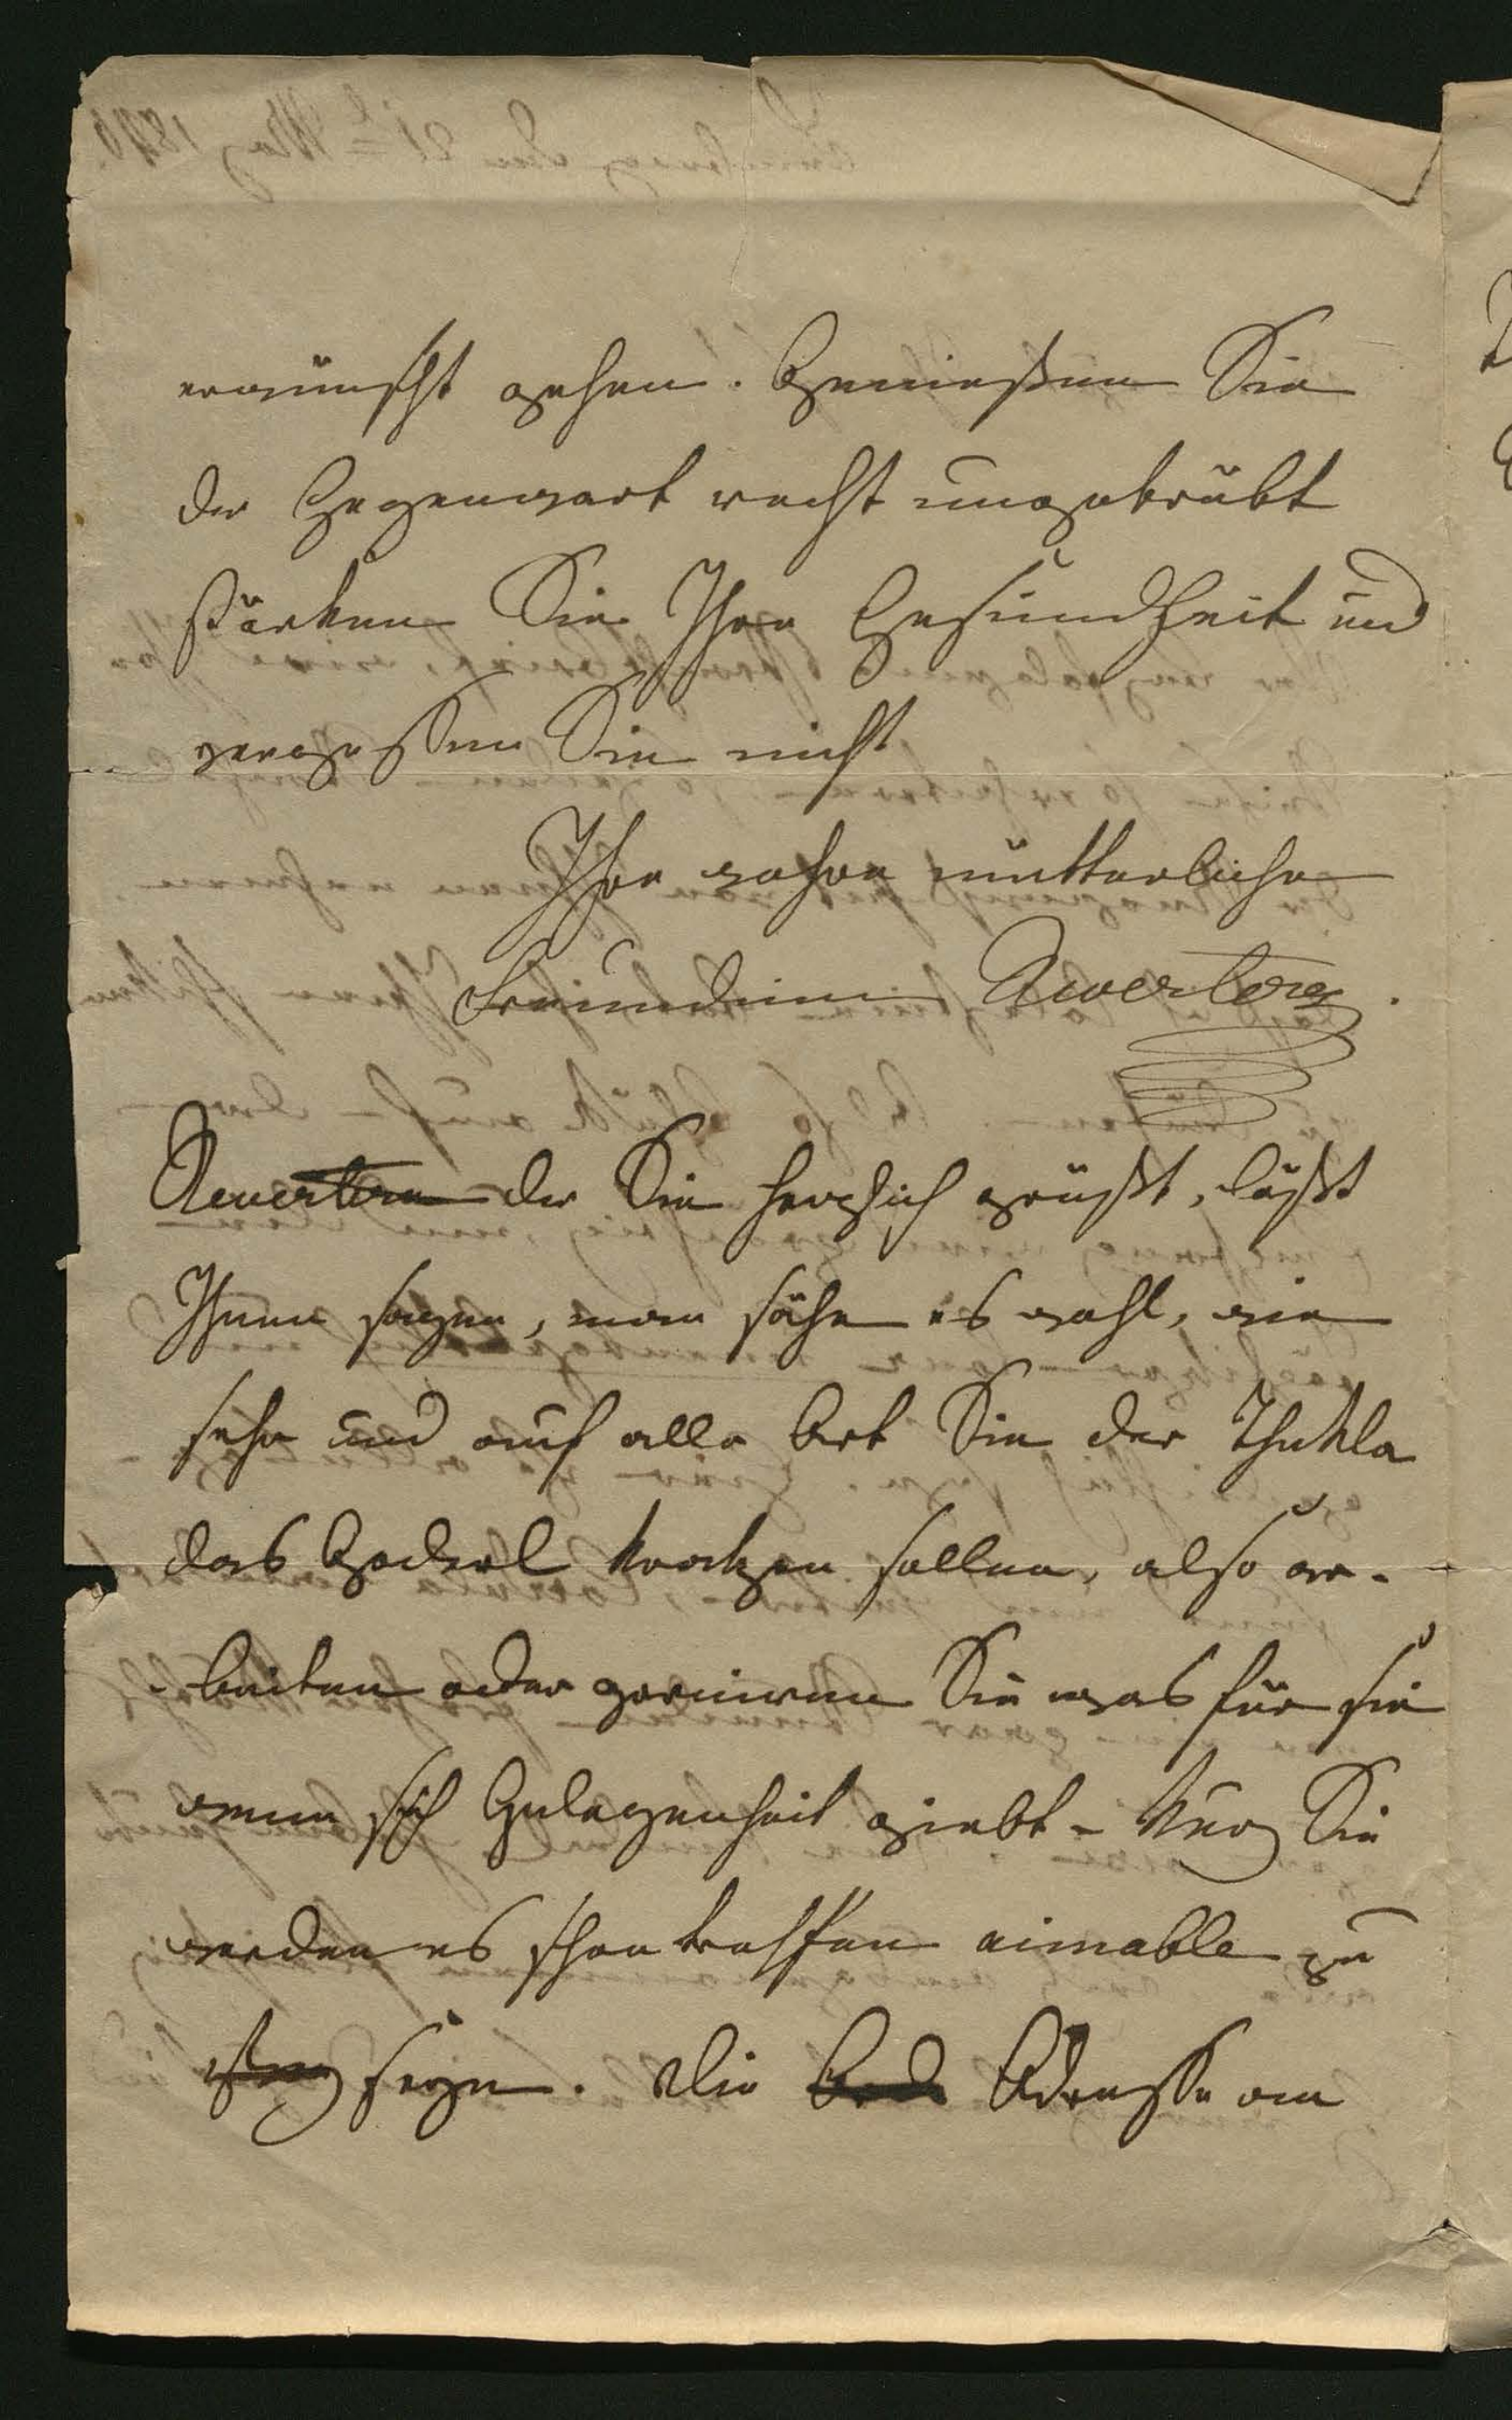 erwünscht gehen. Genießen Sie
der Gegenwart recht ungetrübt
stärken Sie Ihre Gesundheit und
vergeßen Sie nicht
Ihre wahre mütterliche
Freundinn Rewertera.
Rewertera der Sie herzlich grüßt, läßt
Ihnen sagen, man sähe es wohl, wie
sehr und auf alle Art Sie der Thekla
das Goderl kratzen sollen, also ar-
-beiten oder gewinnen Sie was für sie
wenn sich Gelegenheit giebt - Kurz Sie
werden es schon treffen aimable zu
seyn. Die Adresse an